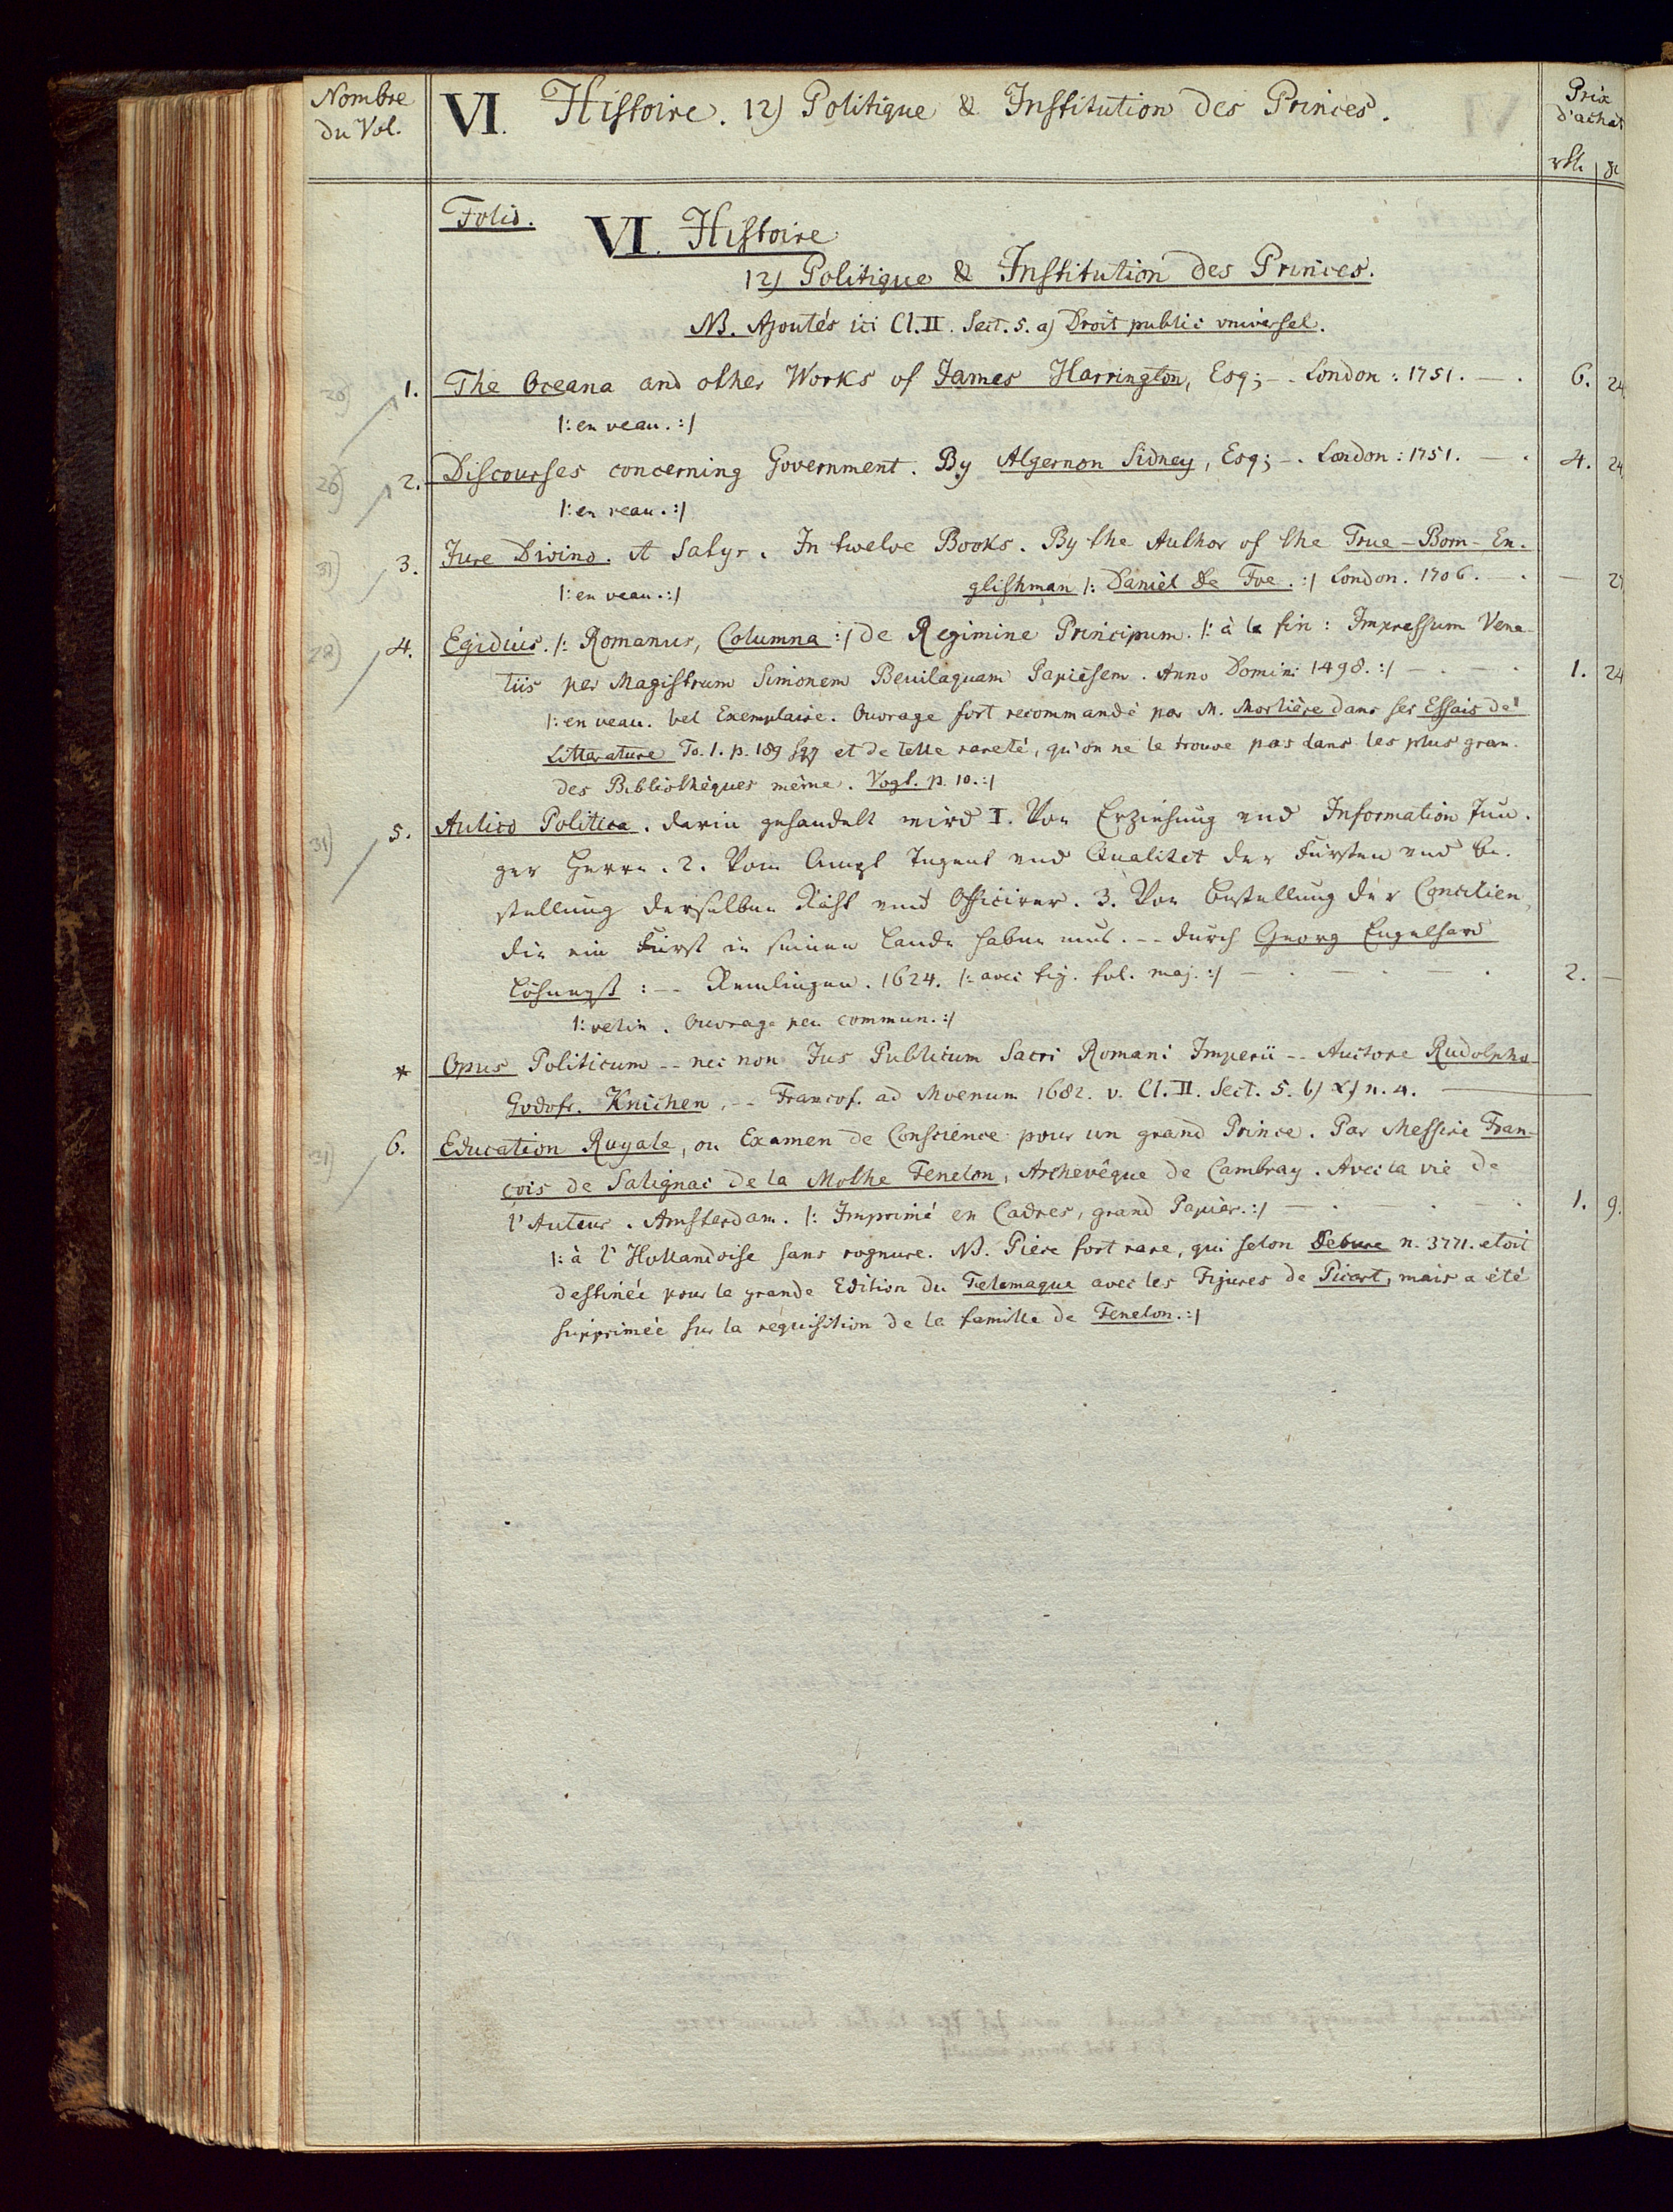 Nombre
du Vol.
VI. Histoire. 12) Politique & Institution des Princes.
Prix
d'achat
rth.
Folio.
VI. Histoire
12) Politique & Institution des Princes.
NB. Ajoutés ici Cl. II. Sect. 5. a) Droit public universel.
1. The Oceana and other Works of James Harrington, Esq; -. London: 1751. — . 6. 24.
|: en veau. :|
26) 2. Discourses concerning Government. By Algernon Sidney, Esq; -. London: 1751. — . 4. 24.
|: en veau. :|
31) 3. Jure Divino. A Satyr. In twelve Books. By the Author of the True-Born-En-
|: en veau. :| glishman |: Daniel De Foe. :| London. 1706. — . —
28) 4. Egidius. |: Romanus, Columna :| de Regimine Principum. |: à la fin: Impressum Vene-
tiis per Magistrum Simonem Beuilaquam Papiesem. Anno Domini 1498. :| — . — . 1. 24
|: en veau. bel Exemplaire. Ouvrage fort recommandé par M. Morliére dans ses Essais de
Litterature To. 1. p. 189 sqq et de telle rareté, qu'on ne le trouve pas dans les plus gran-
des Bibliothéques même. Vogt. p. 10. :|
31) 5. Aulico Politica. darin gehandelt wird I. Von Erziehung vnd Information Jun-
ger Herrn. 2. Vom Ampt Tugent vnd Qualitet der Fürsten vnd be-
stellung derselben Räht vnd Officirer. 3. Von bestellung der Concilien,
die ein Fürst in seinem Lande haben mus. -- durch Georg Engelhard
Löhneyß: -- Remlingen. 1624. |: avec fig. fol. maj. :| — . — . . 2. —
|: velin. Ouvrage peu commun. :|
* Opus Politicum -- nec non Jus Publicum Sacri Romani Imperii -- Auctore Rudolpho
Godofr. Knichen, -- Francof. ad Moenum 1682. v. Cl. II. Sect. 5. b) α) n. 4. —
31) 6. Education Royale, ou Examen de Conscience pour un grand Prince. Par Messire Fran-
çois de Salignac de la Mothe Fenelon, Archevêque de Cambray. Avec la vie de
l'Auteur. Amsterdam. |: Imprimé en Cadres, grand Papier. :| — . — . — . 1. 9.
|: à l'Hollandoise sans rognure. NB. Piéce fort rare, qui selon Debure n. 3771. etoit
destinée pour la grande Edition du Telemaque avec les Figures de Picart, mais a été
supprimée sur la requisition de la famille de Fenelon. :|